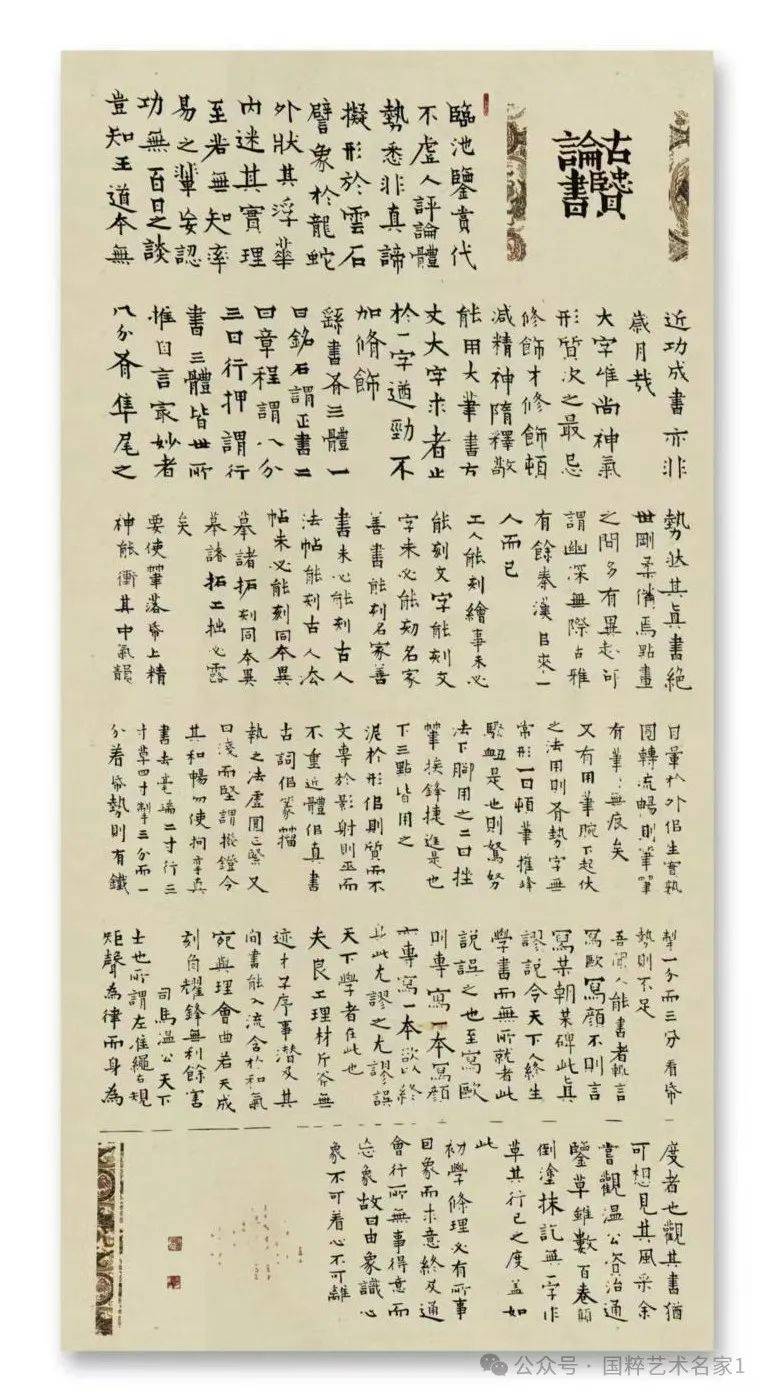 古賢
論書
臨池鑒賞代
不虛人評論體
勢悉非真諦
擬形於雲石
譬象於龍蛇
外狀其浮華
內迷其實理
至若無知率
易之輩妄認
功無百日之談
豈知王道本無
近功成書亦非
歲月哉
大字惟尚神氣
形質次之最忌
修飾才修飾頓
減精神隋釋敬
能用大筆書方
丈大字求者止
於一字遒勁不
加脩飾
繇書有三體一
曰銘石謂正書二
曰章程謂八分
三曰行押謂行
書三體皆世所
推自言最妙者
八分有隼尾之
勢此其真書絕
世剛柔備焉點畫
之間多有異趣可
謂幽深無際古雅
有餘秦漢以來一
人而已
工人能刻繪事未必
能刻文字能刻文
字未必能刻名家
善書能刻名家善
書未必能刻古人
法帖能刻古人法
帖未必能刻同本異
摹諸拓刻同本異
摹諸拓工拙必露
矣
要使筆落紙上精
神能衝其中氣韻
日暈於外但生會執
圓轉流暢則筆筆
有筆筆無度矣
又有用筆腕下起伏
之法用則有勢字無
常形一曰頓筆摧鋒
驟衄是也則駑努
法下腳用之二曰挫
筆挨鋒捷進是也
下三點皆用之
泥於形但則質而不
文專於影射則巫而
不重近體但真書
古詞但篆籀
執之法虛圓正緊又
曰淺而堅謂撥鐙令
其和暢勿使拘孿真
書去毫端二寸行三
寸草四寸掣三分而一
分着紙勢則有
掣一分而三分着紙
勢則不足
吾聞人能書者輒言
寫歐寫顏不則言
寫某朝某碑此真
謬說今天下人終生
學書而無所就者此
說誤之也至寫歐
則專寫一本寫顏
亦專寫一本欲以終
身此尤謬之尤謬誤
天下學者在此也
夫良工理材斤斧無
迹才子序事潛及其
向書能入流含於和氣
宛與理會曲若天成
刻角耀鋒無利餘害
司馬溫公天下
士也所謂左準繩右規
矩聲為律而身為
度者也觀其書猶
可想見其風采余
嘗觀溫公資治通
鑒草雖數百卷顛
倒塗抹訖無一字作
草其行己之度蓋如
此
初學條理必有所事
因象而求意終及通
會行所無事得意而
忘象故曰由象識心
象不可着心不可離
公众号 · 国粹艺术名家1